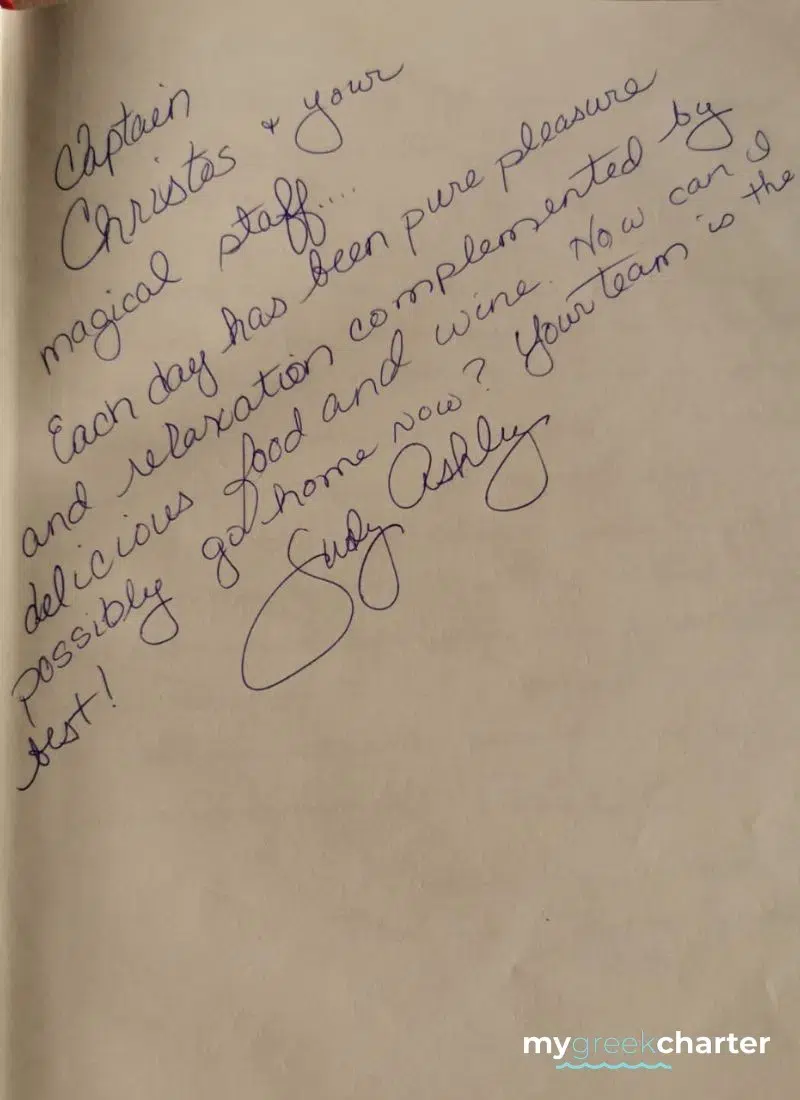 Captain
Christos + your
magical staff....
Each day has been pure pleasure
and relaxation complemented by
delicious food and wine. How can I
possibly go home now? Your team is the
best!
Judy Ashley
mygreekcharter